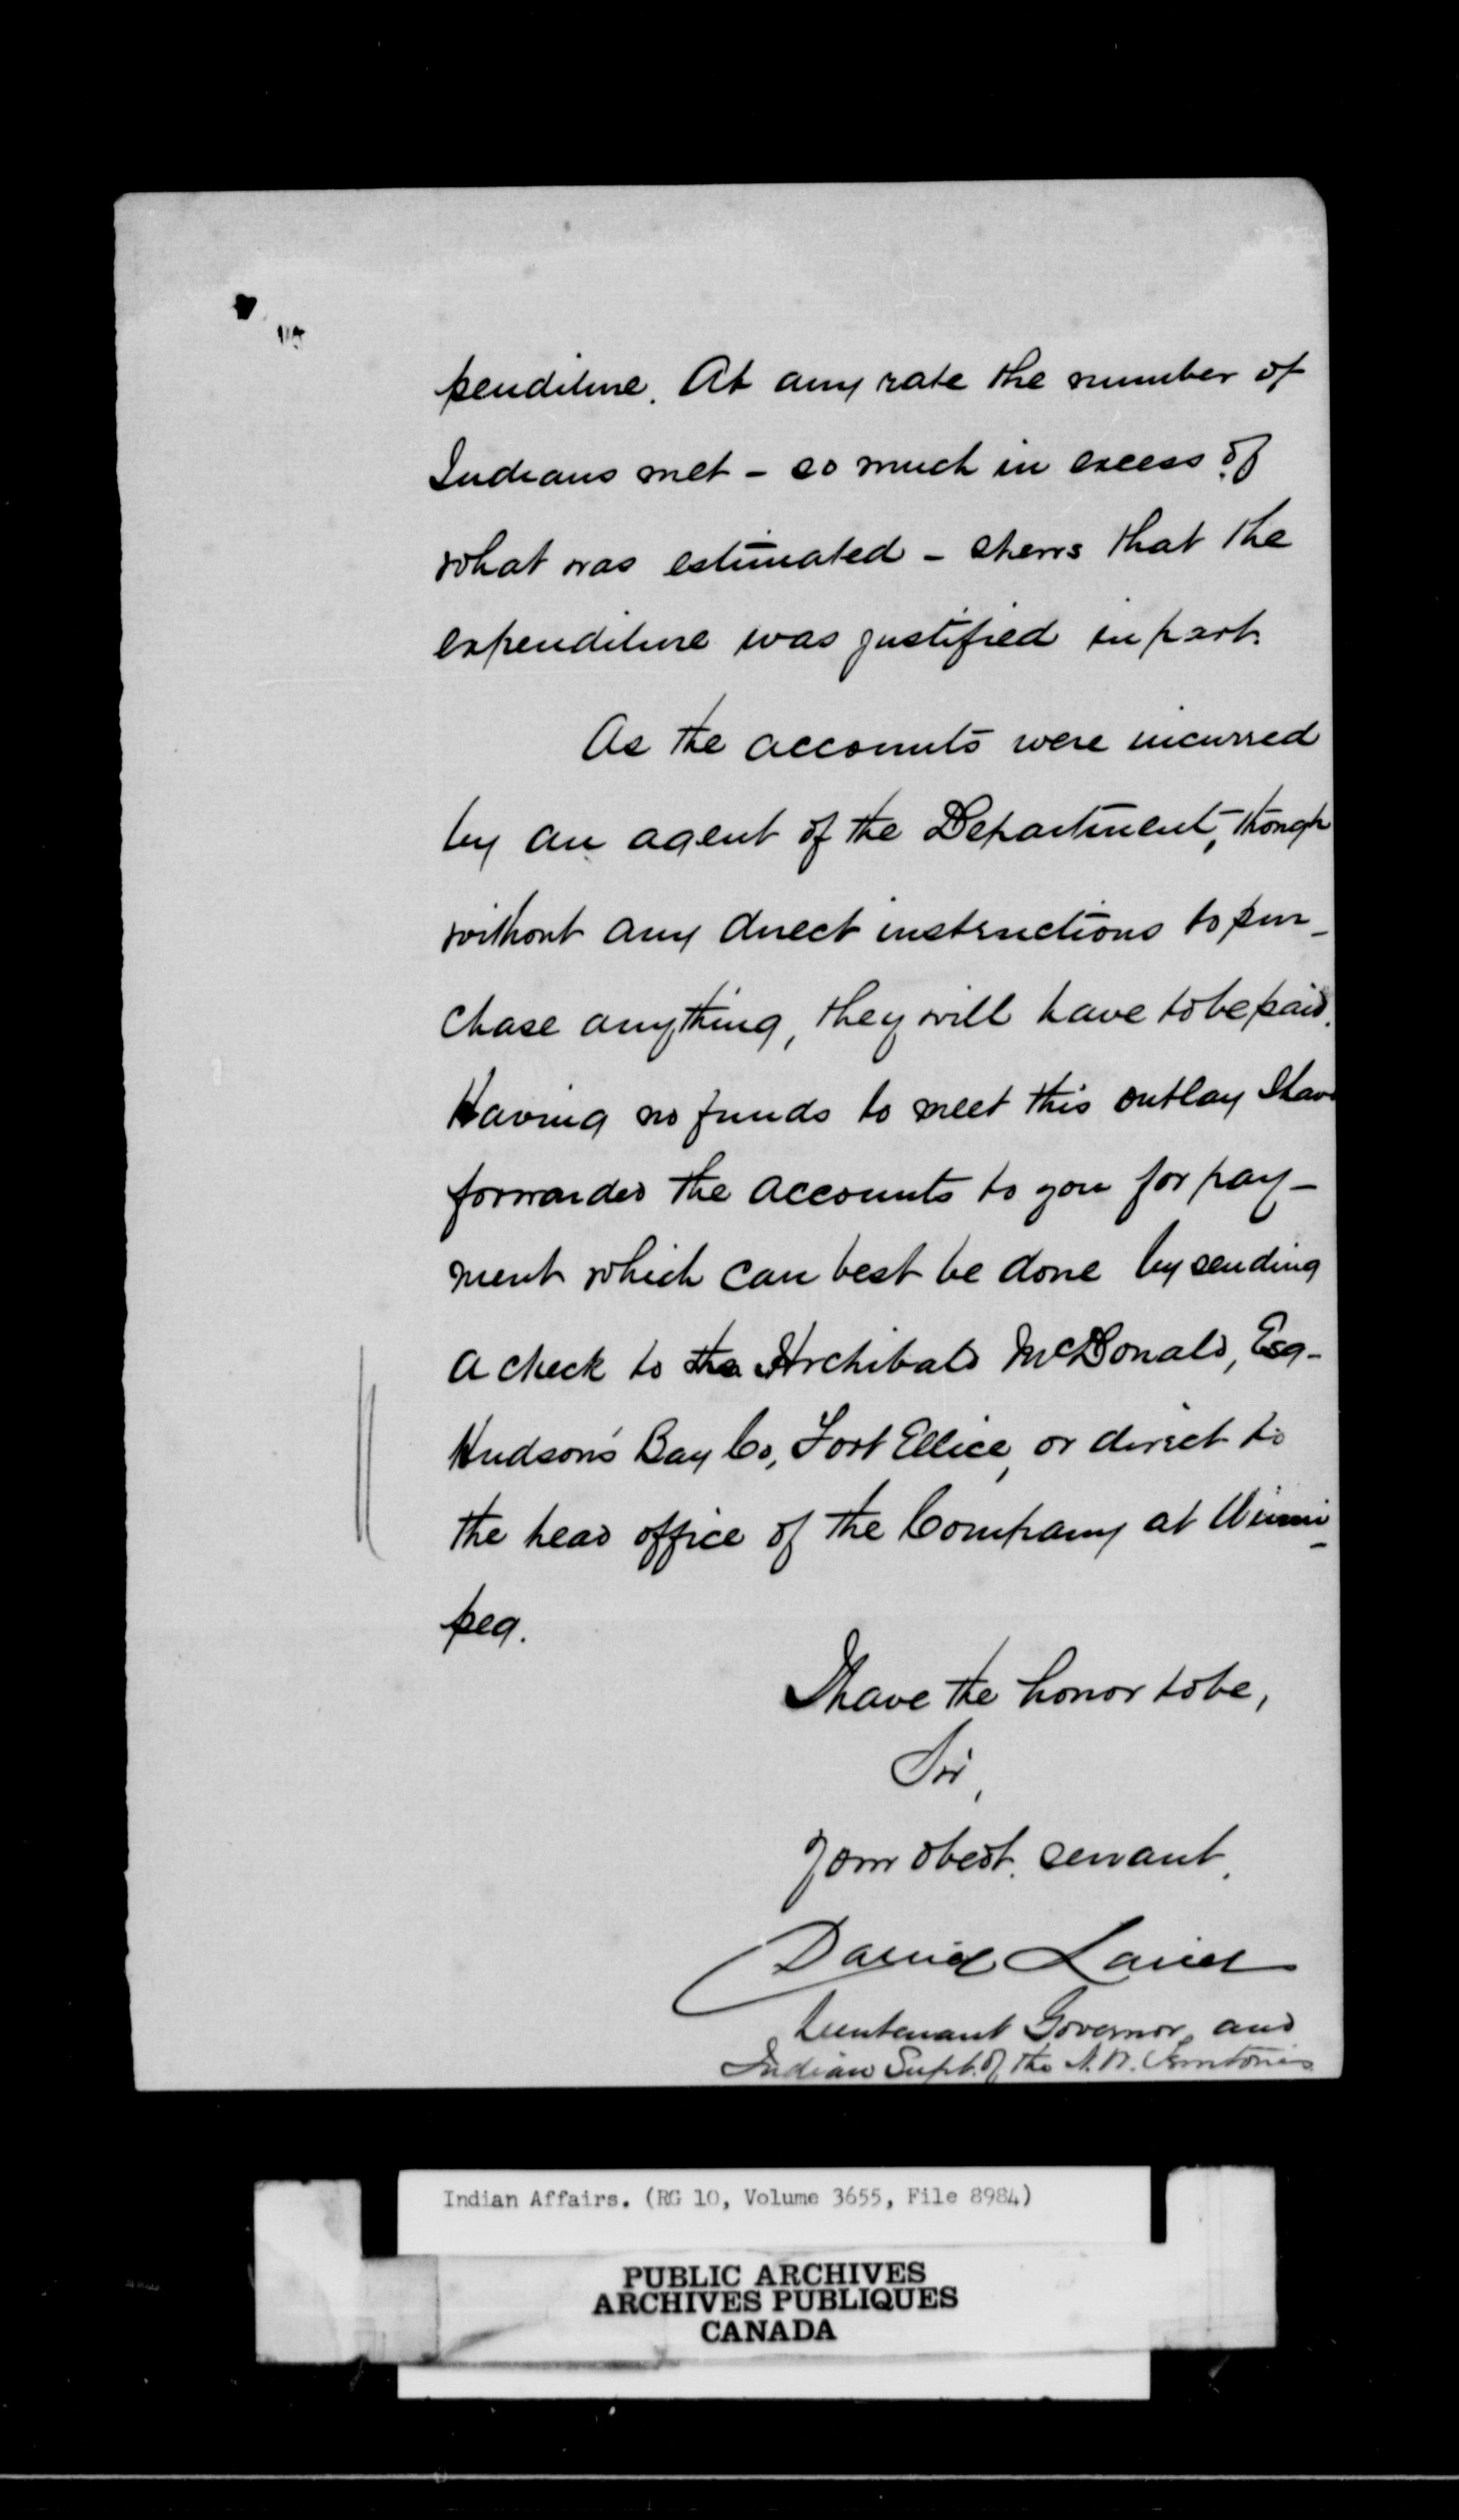 penditure. At any rate the number of
Indians met - so much in excess of
what was estimated - shews that the
expenditure was justified in part.
As the accounts were incurred
by an agent of the Department, though
without any direct instructions to pur-
chase anything, they will have to be paid.
Having no funds to meet this outlay I have
forwarded the accounts to you for pay-
ment which can best be done by sending
a check to the Archibald McDonald, Esq-
Hudson's Bay Co, Fort Ellice, or direct to
the head office of the Company at Winni-
peg.
I have the honor to be,
Sir,
Your obedt. servant,
David Laird
Lieutenant Governor, and
Indian Supt. of the N.W. Territories
Indian Affairs. (RG 10, Volume 3655, File 8984)
PUBLIC ARCHIVES
ARCHIVES PUBLIQUES
CANADA